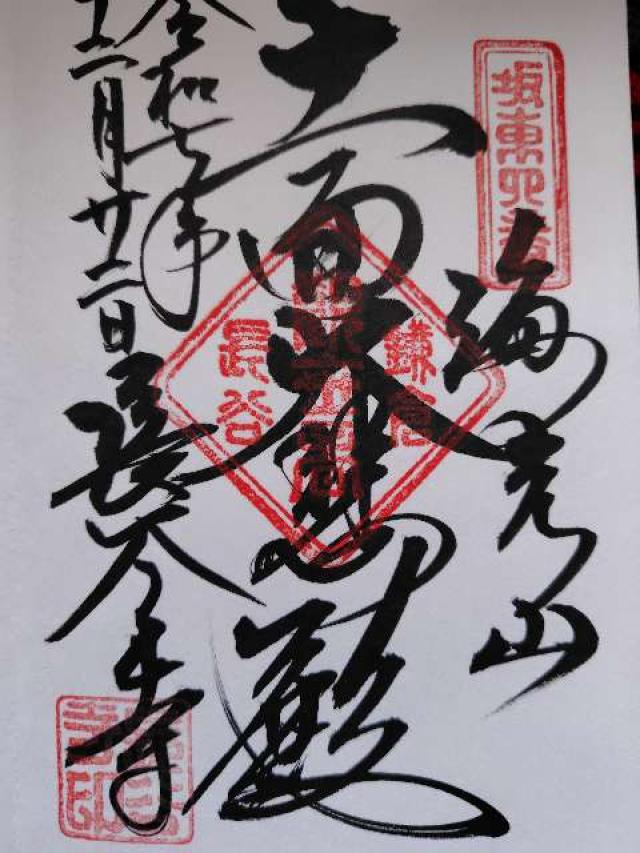 坂東四番
海光山
十一面大悲殿
鎌倉
長谷
令和七年
十二月廿二日
長谷寺